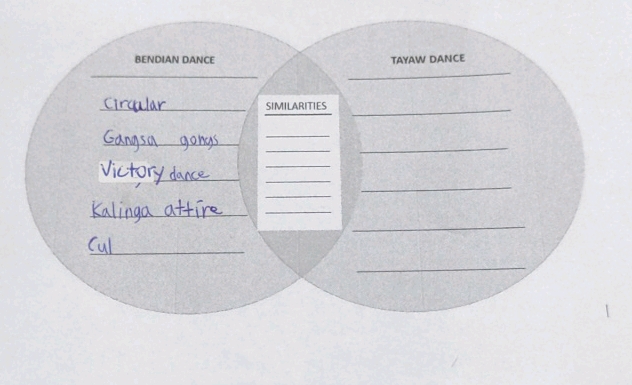 BENDIAN DANCE
Circular
Gangsa gongs
Victory dance
Kalinga attire
Cul
SIMILARITIES
TAYAW DANCE